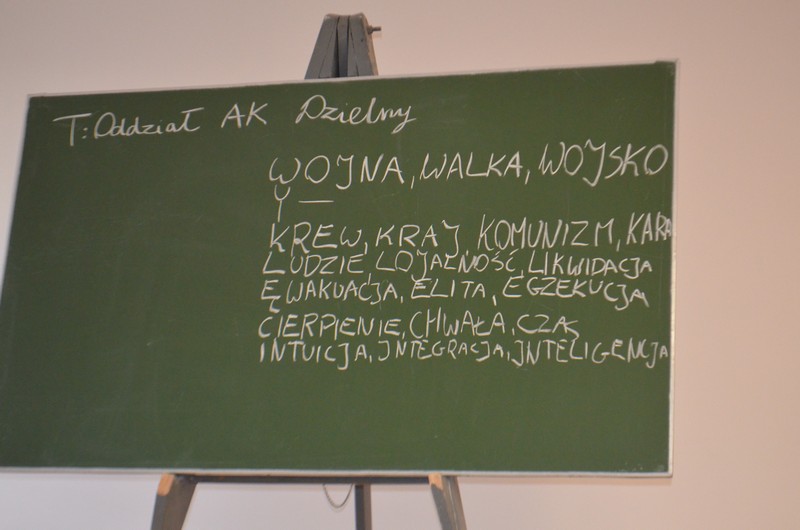 T: Oddział AK Dzielny
WOJNA, WALKA, WOJSKO
Y —
KREW, KRAJ, KOMUNIZM, KARA
LUDZIE LOJALNOŚĆ, LIKWIDACJA
EWAKUACJA, ELITA, EGZEKUCJA
CIERPIENIE, CHWAŁA, CZAS
INTUICJA, INTEGRACJA, INTELIGENCJA